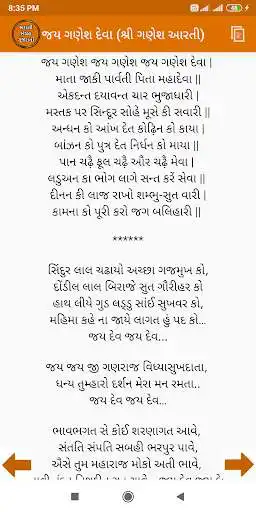 8:35 PM
જય ગણેશ દેવા (શ્રી ગણેશ આરતી)
જય ગણેશ જય ગણેશ જય ગણેશ દેવા |
માતા જાકી પાર્વતી પિતા મહાદેવા ||
એકદન્ત દયાવન્ત ચાર ભુજાધારી |
મસ્તક પર સિન્દૂર સોહે મૂસે કી સવારી ||
અન્ધન કો આંખ દેત કોઢ઼િન કો કાયા |
બાંઝન કો પુત્ર દેત નિર્ધન કો માયા ||
પાન ચઢ઼ૈ ફૂલ ચઢ઼ૈ ઔર ચઢ઼ૈ મેવા |
લડુઅન કા ભોગ લાગે સન્ત કરેં સેવા ||
દીનન કી લાજ રાખો શમ્ભુ-સુત વારી |
કામના કો પૂરી કરો જગ બલિહારી ||
******
સિંદુર લાલ ચઢાયો અચ્છા ગજમુખ કો,
દોંદીલ લાલ બિરાજે સુત ગૌરીહર કો
હાથ લીયે ગુડ લડ્ડુ સાંઈ સુખવર કો,
મહિમા કહે ના જાયે લાગત હું પદ કો...
જય દેવ જય દેવ...
જય જય જી ગણરાજ વિધ્યાસુખદાતા,
ધન્ય તુમ્હારો દર્શન મેરા મન રમતા..
જય દેવ જય દેવ...
ભાવભગત સે કોઈ શરણાગત આવે,
સંતતિ સંપતિ સબહી ભરપુર પાવે,
ઐસે તુમ મહારાજ મોકો અતી ભાવે,